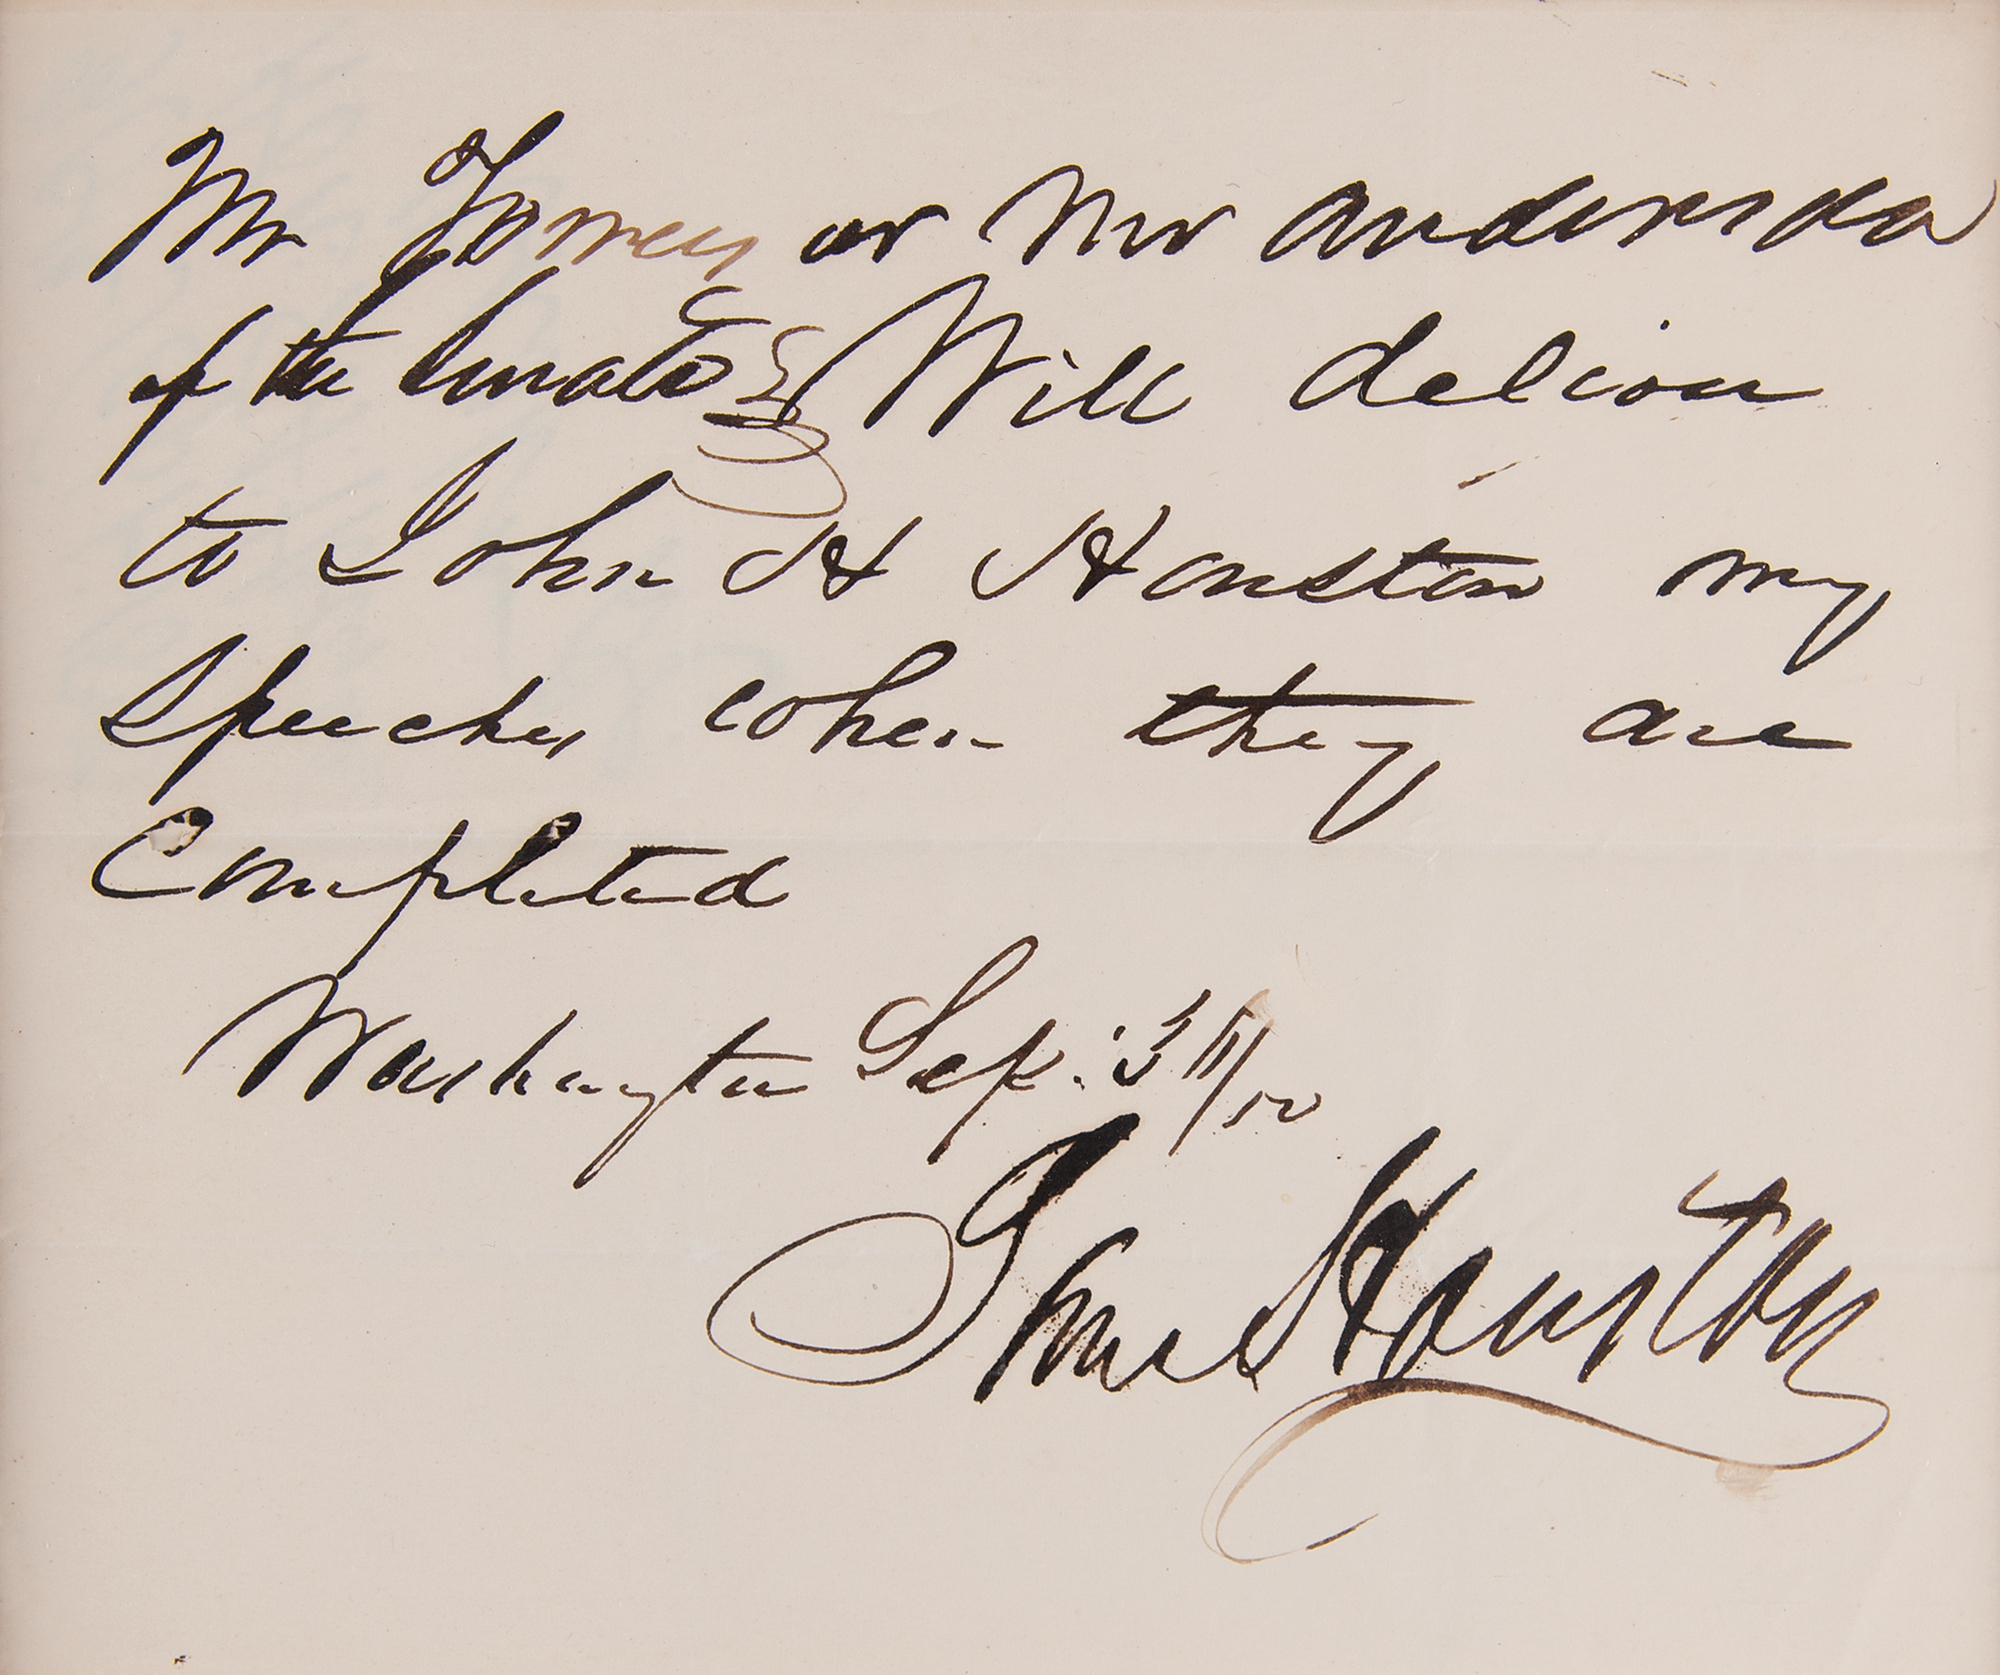 Mr Forney or Mr Anderson
of the Senate Will deliver
to John H Houston my
Speeches when they are
Completed
Washington Sep. 3
Sam Houston